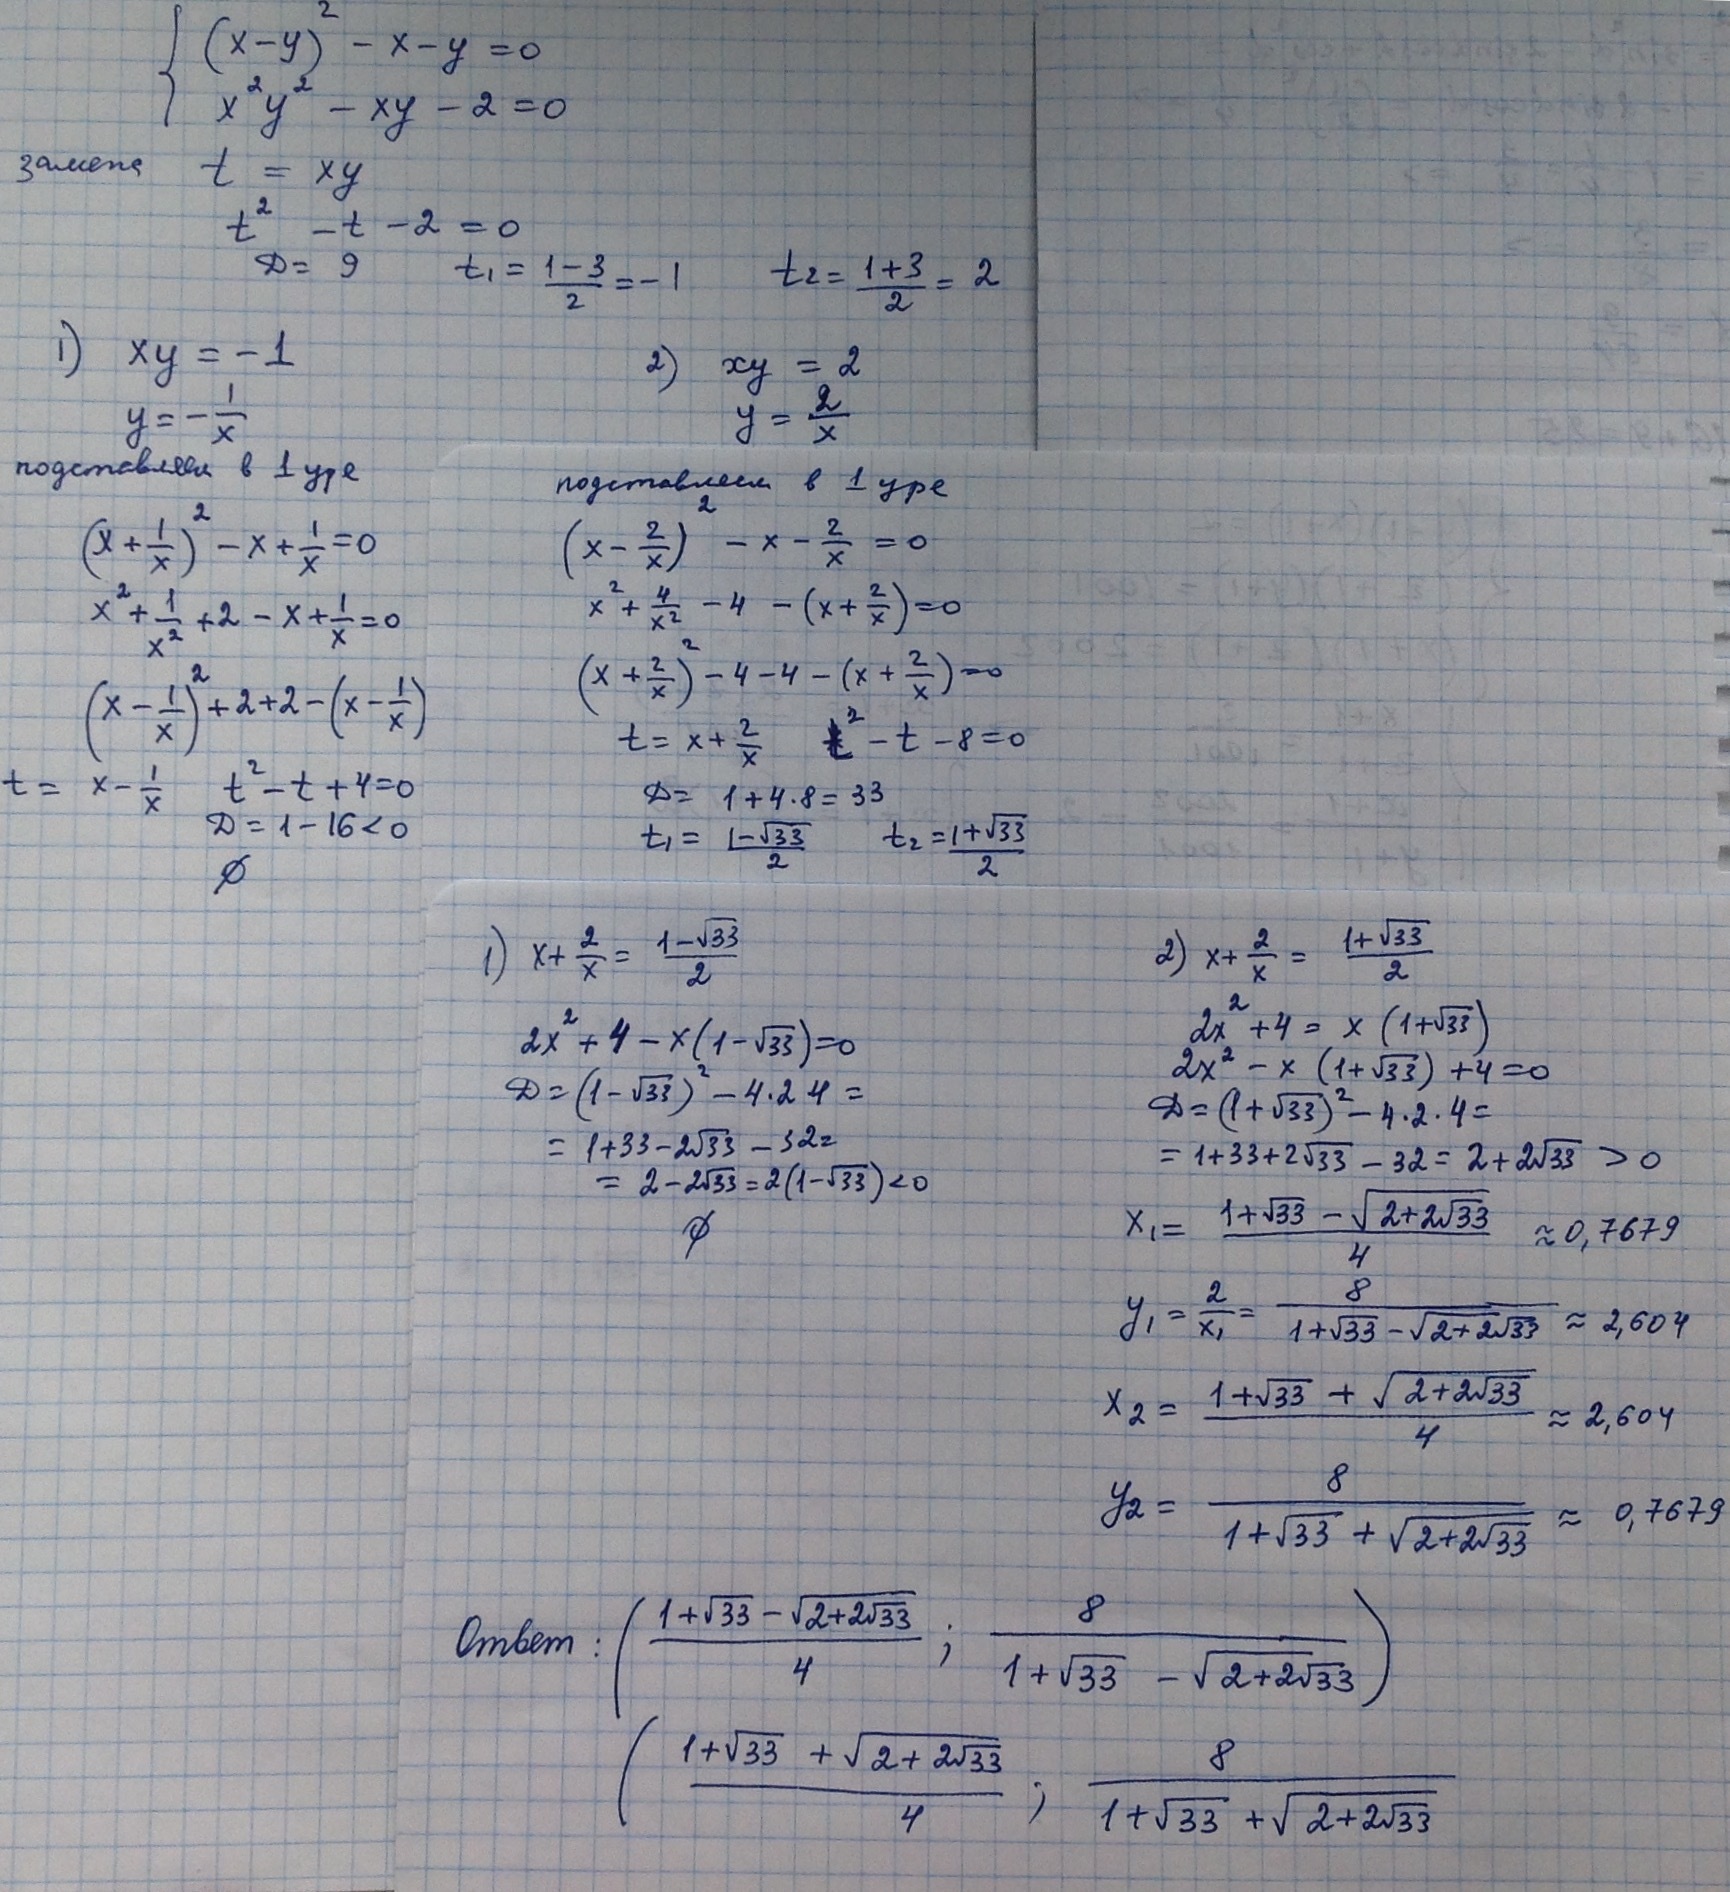 (x-y)² - x - y = 0
x²y² - xy - 2 = 0
замена t = xy
t² - t - 2 = 0
D = 9 t₁ = (1-3)/2 = -1 t₂ = (1+3)/2 = 2
1) xy = -1
y = -1/x
подставляем в 1 уре
(x + 1/x)² - x + 1/x = 0
x² + 1/x² + 2 - x + 1/x = 0
(x - 1/x)² + 2 + 2 - (x - 1/x)
t = x - 1/x t² - t + 4 = 0
D = 1 - 16 < 0
∅
2) xy = 2
y = 2/x
подставляем в 1 уре
(x - 2/x)² - x - 2/x = 0
x² + 4/x² - 4 - (x + 2/x) = 0
(x + 2/x)² - 4 - 4 - (x + 2/x) = 0
t = x + 2/x t² - t - 8 = 0
D = 1 + 4·8 = 33
t₁ = (1-√33)/2 t₂ = (1+√33)/2
1) x + 2/x = (1-√33)/2
2x² + 4 - x(1-√33) = 0
D = (1-√33)² - 4·2 4 =
= 1 + 33 - 2√33 - 32 =
= 2 - 2√33 = 2(1-√33) < 0
∅
2) x + 2/x = (1+√33)/2
2x² + 4 = x(1+√33)
2x² - x(1+√33) + 4 = 0
D = (1+√33)² - 4·2·4 =
= 1 + 33 + 2√33 - 32 = 2 + 2√33 > 0
x₁ = (1+√33 - √(2+2√33))/4 ≈ 0,7679
y₁ = 2/x₁ = 8/(1+√33 - √(2+2√33)) ≈ 2,604
x₂ = (1+√33 + √(2+2√33))/4 ≈ 2,604
y₂ = 8/(1+√33 + √(2+2√33)) ≈ 0,7679
Ответ: ((1+√33 - √(2+2√33))/4 ; 8/(1+√33 - √(2+2√33)))
((1+√33 + √(2+2√33))/4 ; 8/(1+√33 + √(2+2√33))